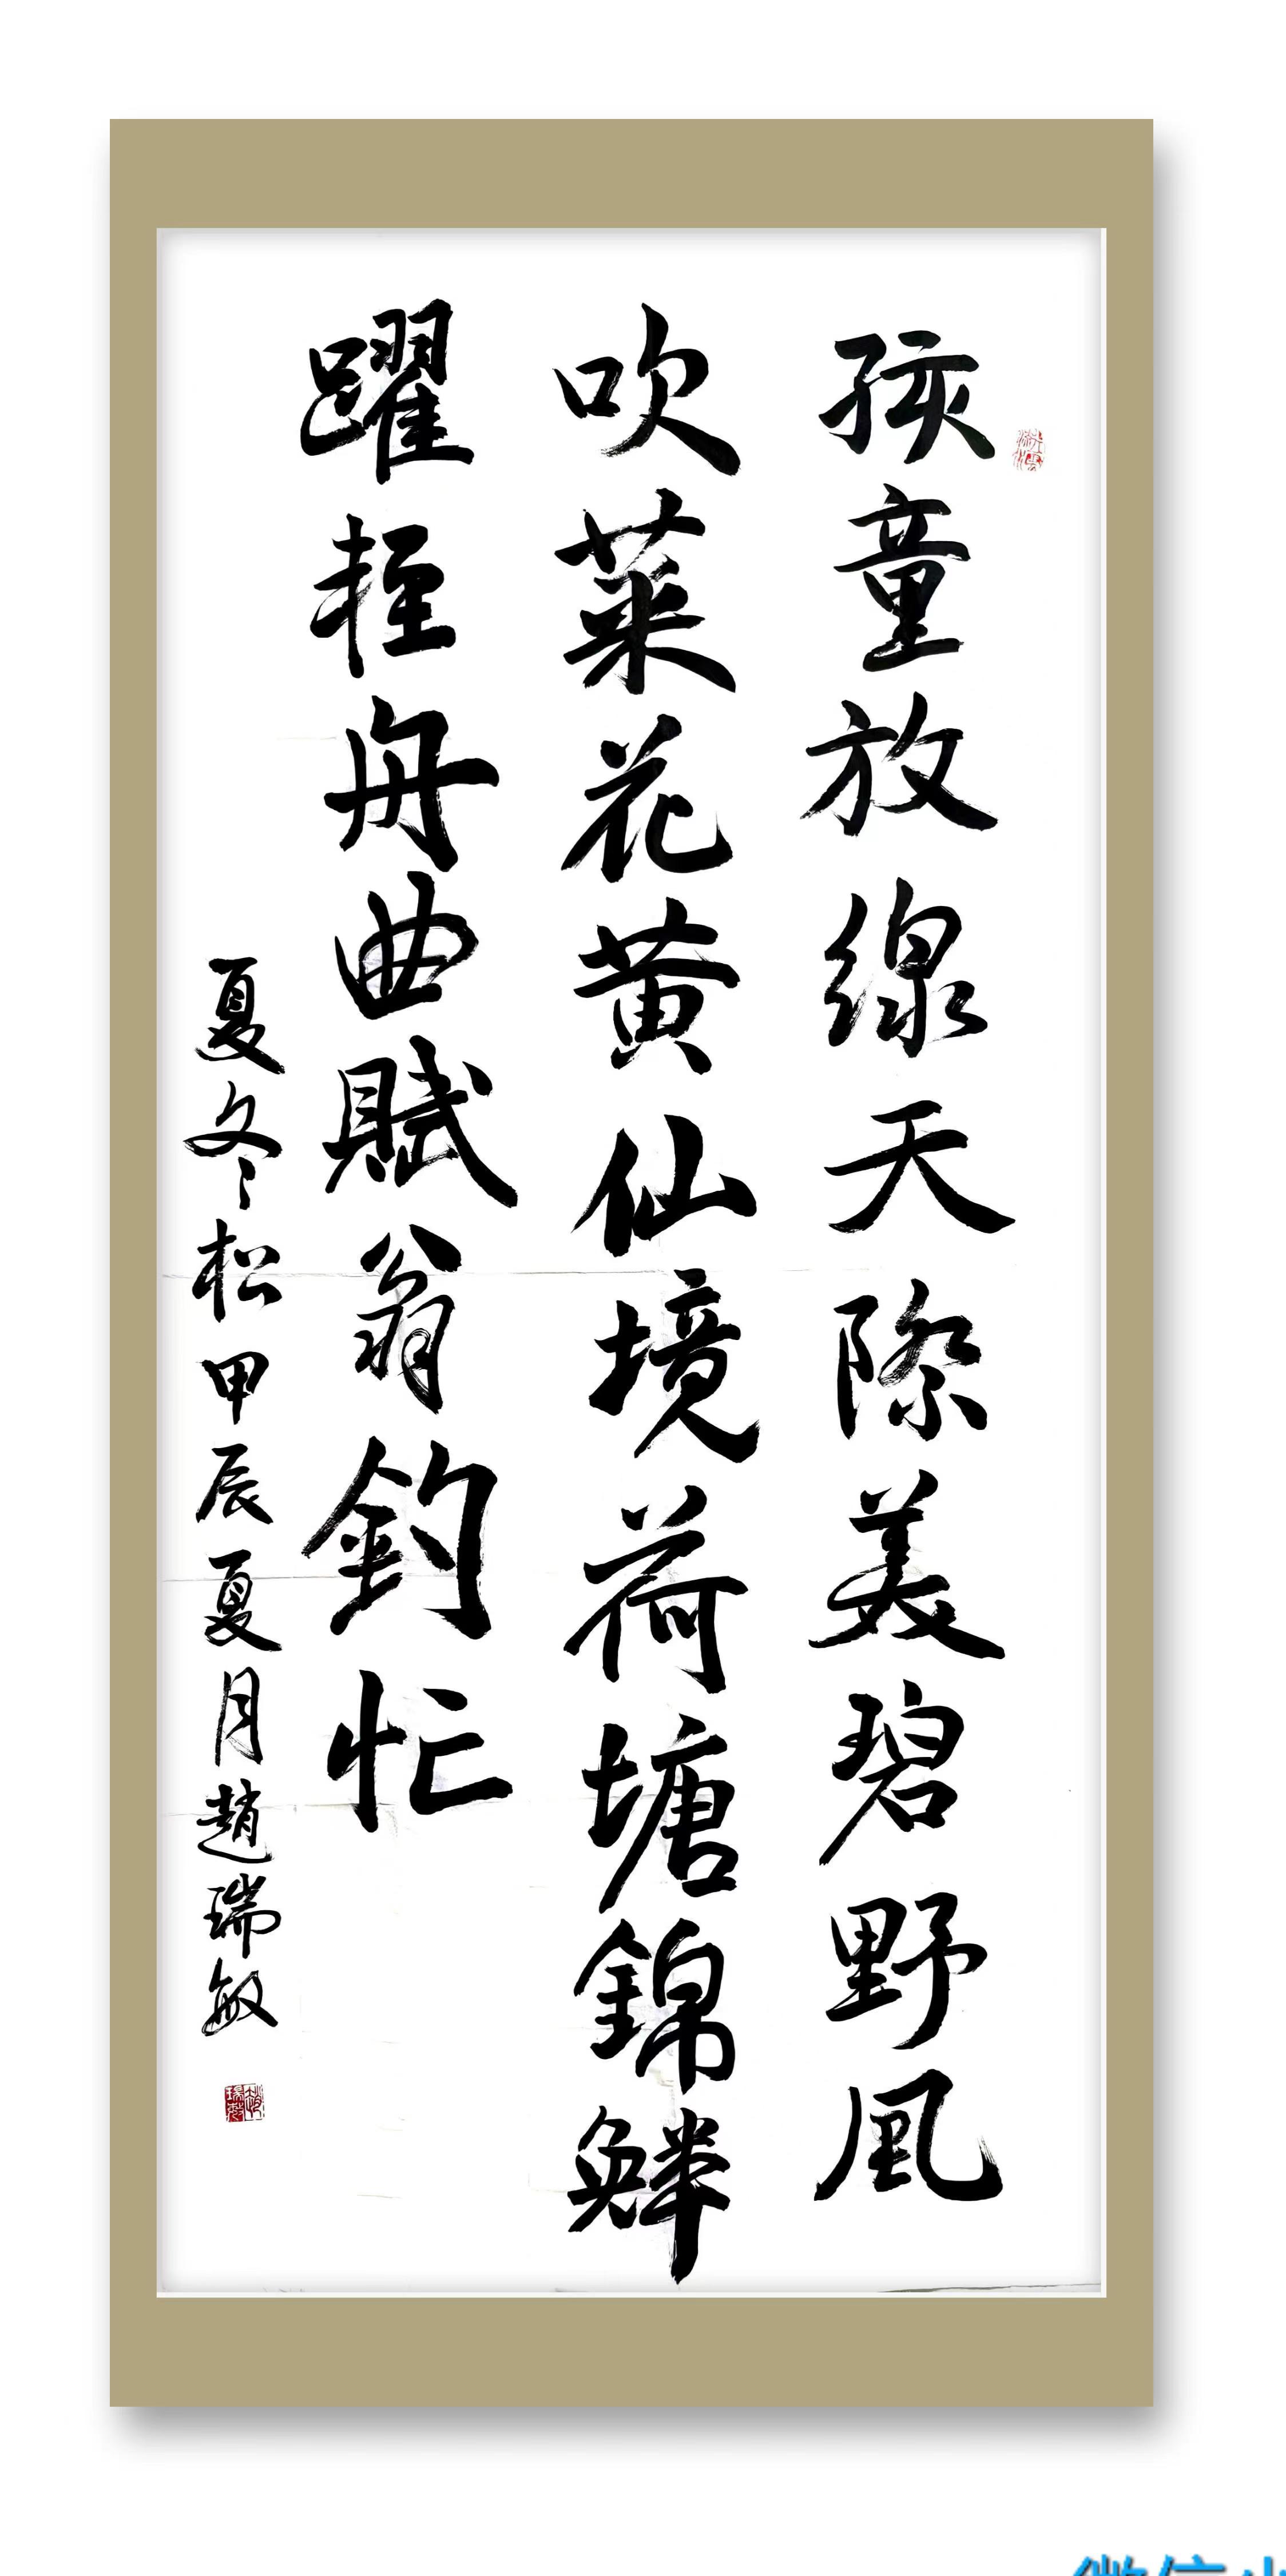 孩童放線天際美碧野風
吹菜花黄仙境荷塘錦鱗
躍輕舟曲賦翁釣忙
夏冬松甲辰夏月趙瑞敏
趙瑞敏